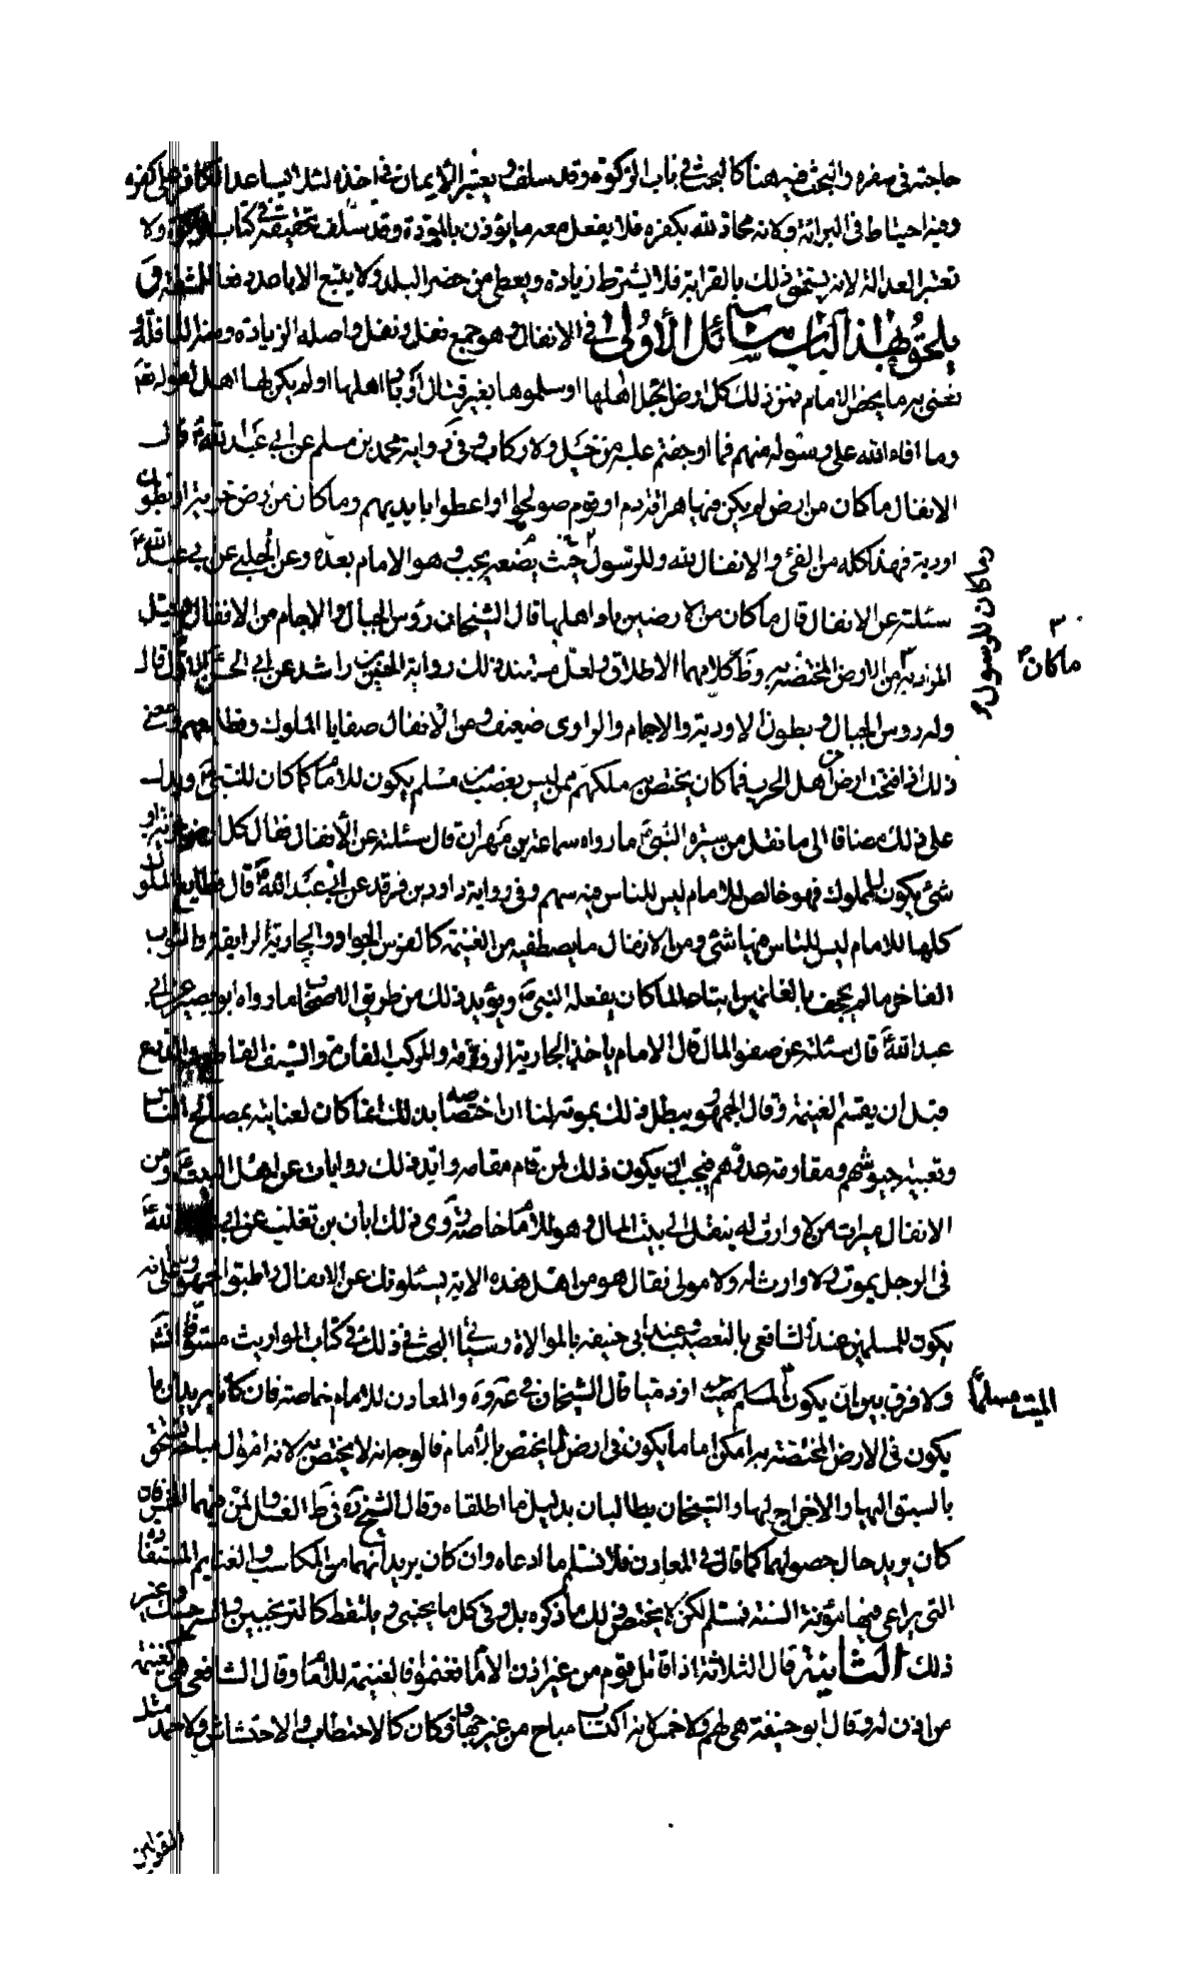 حاجته فى سفره والبحث فيه هنا كالبحث فى باب الزكوة وقد سلف ويعتبر الايمان فى اخذه لئلا يساعد الكافر على كفره
وفيه احتياط فى البرائة ولانه محاد لله بكفره فلا يفعل معه ما يؤذن بالمودة وقد سلف تحقيقه فى كتاب الزكوة ولا
تعتبر العدالة لانه يستحق ذلك بالقرابة فلا يشترط زيادة ويعطى من حضر البلد ولا يتبع الاباعد دفعا للمشقة و
يلحق بهذا الباب مسائل الاولى فى الانفال وهو جمع نفل ونفل واصله الزيادة ومنه النافلة و
نعنى به ما يخص الامام فمن ذلك كل ارض انجلى اهلها او سلموها بغير قتال او باد اهلها او لم يكن لها اهل لقوله تعالى
وما افاء الله على رسوله منهم فما اوجفتم عليه من خيل ولا ركاب وفى رواية محمد بن مسلم عن ابى عبد الله قال
الانفال ما كان من ارض لم يكن فيها هراقة دم او قوم صولحوا او اعطوا بايديهم وما كان من ارض خربة او بطون
اودية فهذا كله من الفئ والانفال لله وللرسول حيث يضعه يحب وهو الامام بعده وعن الحلبى عن ابى عبد الله
سئلته عن الانفال قال ما كان من الارضين باد اهلها قال الشيخان رؤس الجبال والاجام من الانفال وقيل
المراد به من الارض المختصة به وظ كلامهما الاطلاق ولعل مستند ذلك رواية الحسن بن راشد عن ابى الحسن الاول قال
وله رؤس الجبال وبطون الاودية والاجام والراوى ضعيف ومن الانفال صفايا الملوك وقطايعهم ومعنى
ذلك اذا فتحت ارض من اهل الحرب فما كان يختص به ملكهم مما ليس بغصب من مسلم يكون للامام كما كان للنبى ويدل
على ذلك مضافا الى ما نقل من سيرة النبى ما رواه سماعة بن مهران قال سئلته عن الانفال فقال كل ارض خربة او
شئ يكون للملوك فهو خالص للامام ليس للناس فيه سهم وفى رواية داود بن فرقد عن ابى عبد الله قال قطايع الملوك
كلها للامام ليس للناس فيها شئ ومن الانفال ما يصطفيه من الغنيمة كالفرس الجواد والجارية الرايقة والثوب
الفاخر ما لم يجحف بالغانمين اتباعا لما كان يفعله النبى ويؤيد ذلك من طريق الاصحاب ما رواه ابو بصير عن ابى
عبد الله قال سئلته عن صفو المال قال الامام ياخذ الجارية الروقة والمركب الفاره والسيف القاطع والدرع
قبل ان يقسم الغنيمة وقال الجمهور يبطل ذلك بموته لنا ان اختصاصه بذلك انما كان لعنايته بمصالح الناس
وتعبية جيوشهم ومقاومة عدوهم فيجب ان يكون ذلك لمن قام مقامه وايد ذلك روايات عن اهل البيت ومن
الانفال ميراث من لا وارث له ينقل الى بيت المال وهو للامام خاصة روى ذلك ابان بن تغلب عن ابى عبد الله
فى الرجل يموت ولا وارث له ولا مولى فقال هو من اهل هذه الاية يسئلونك عن الانفال واطبق الجمهور على انه
يكون للمسلمين عند الشافعى بالتعصيب وعند ابى حنيفه بالموالاة وسياتى البحث فى ذلك فى كتاب المواريث مستوفى انشاء الله
ولا فرق بين ان يكون المسلم او ذميا قال الشيخان فى عه وه والمعادن للامام خاصة فان كانا يريدان ما
يكون فى الارض المختصة به امكن اما ما يكون فى ارض لا يختص بالامام فالوجه انه لا يختص به لانه اموال مباحة تستحق
بالسبق اليها والاخراج لها والشيخان يطالبان بدليل ما اطلقاه وقال الشيخ ره فى ط العسل والمن فيهما الخمس فان
كان يريد حال حصولهما كما قال فى المعادن فلا نسلم ما ادعاه وان كان يريد انهما من المكاسب والغنايم المستفادة
التى يراعى فيها مؤنة السنة فنسلم لكن لا يختص ذلك ما ذكره بل وفى كل ما يجتنى ويلتقط كالترنجبين والشيرخشك وغير
ذلك الثانية قال الثلاثة اذا قاتل قوم من غير اذن الامام فغنموا فالغنيمة للامام وقال الشافعى هى كغنيمة
من اذن له وقال ابو حنيفة هى لهم ولا خمس لانه اكتساب مباح من غير جهاد فكان كالاحتطاب والاحتشاش ولاحمد مثل
وما كان للرسول
ما كان
الميت مسلما
القولين